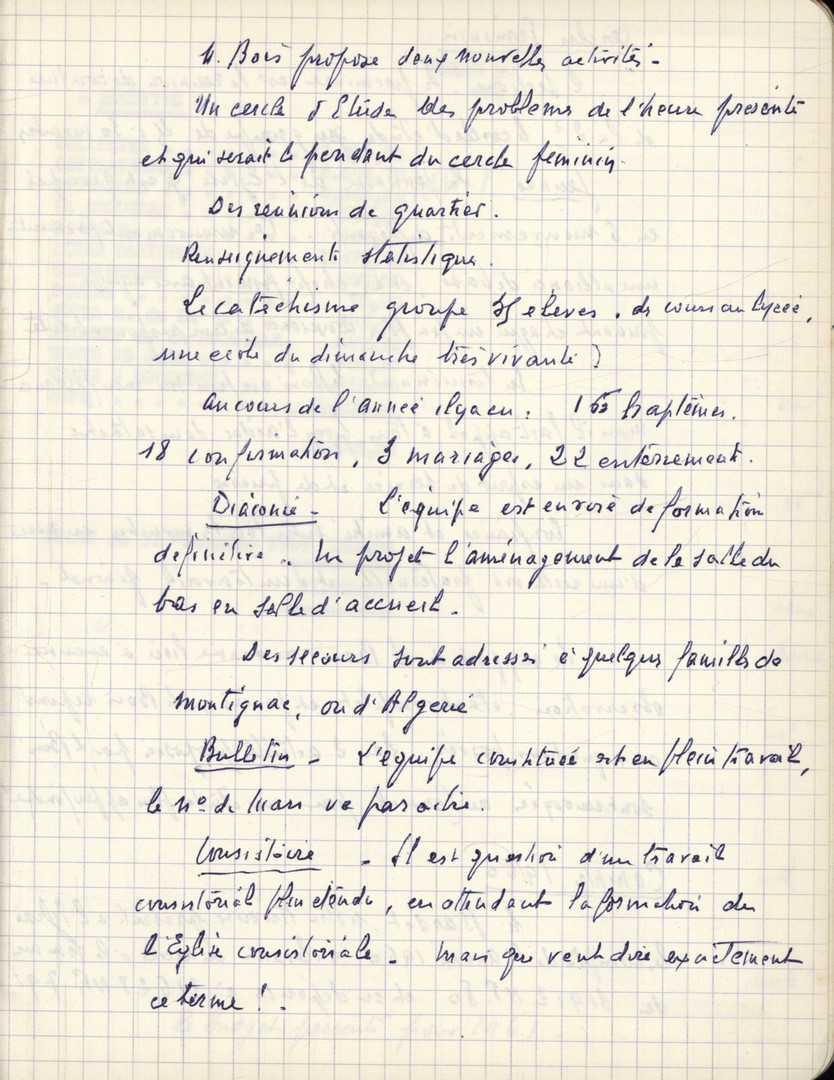 M. Bois propose deux nouvelles activités -
Un cercle d'Etude des problèmes de l'heure présente
et qui serait le pendant du cercle féminin.
Des réunions de quartier.
Renseignements statistiques.
Le catéchisme groupe 35 élèves, des cours au lycée,
une école du dimanche très vivante
au cours de l'année il y a eu : 16 baptêmes.
18 confirmation, 3 mariages, 22 enterrements.
Diaconie - L'équipe est en voie de formation
définitive. Un projet l'aménagement de la salle du
bas en salle d'accueil.
Des secours sont adressés à quelques familles de
Montignac, ou d'Algérie
Bulletin - L'équipe constituée est en plein travail,
le nº de Mars va paraitre.
Consistoire - Il est question d'un travail
consistorial plus étendu, en attendant la formation de
l'Eglise consistoriale - mais que veut dire exactement
ce terme ! -